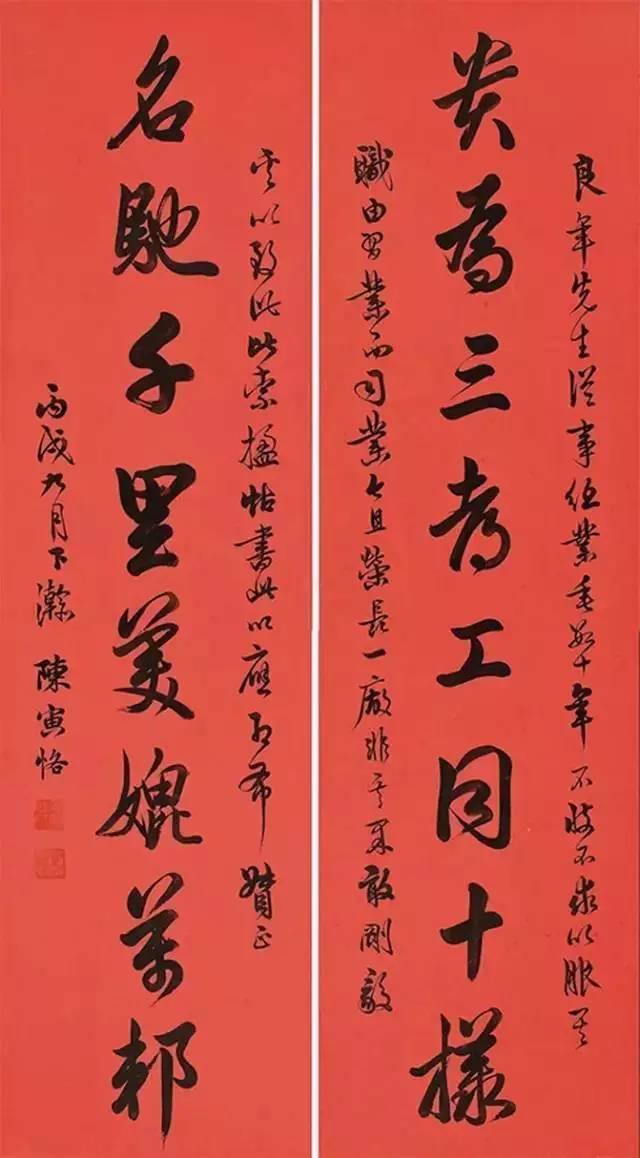 良年先生從事伍業垂數十年不忮不求以服其
貴為三考工同十樣
職由習業而司業且榮長一廠非其果敢剛毅
以致此索楹帖書此以應即希贊正
名馳千里美媲萬邦
丙戌九月下澣 陳寅恪